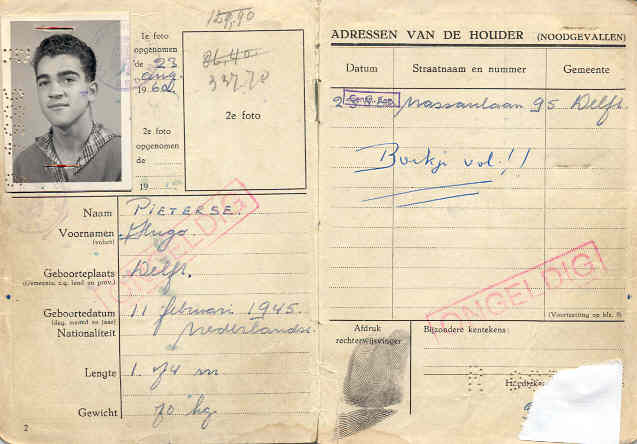 1e foto
opgenomen
de 23
aug.
1960
2e foto
opgenomen
de
19
159,90
86,40
337,70
2e foto
Naam PIETERSE.
Voornamen Hugo
(voluit)
Geboorteplaats Delft.
(Gemeente, z.g. land en prov.)
Geboortedatum 11 februari 1945.
(dag, maand en jaar)
Nationaliteit Nederlandse
Lengte 1.74 m
Gewicht 70 kg
ONGELDIG
2
ADRESSEN VAN DE HOUDER (NOODGEVALLEN)
Datum Straatnaam en nummer Gemeente
Nassaulaan 95 Delft
Boekje vol!!
ONGELDIG
(Voortzetting op blz. 8)
Afdruk
rechterwijsvinger
Bijzondere kentekens: